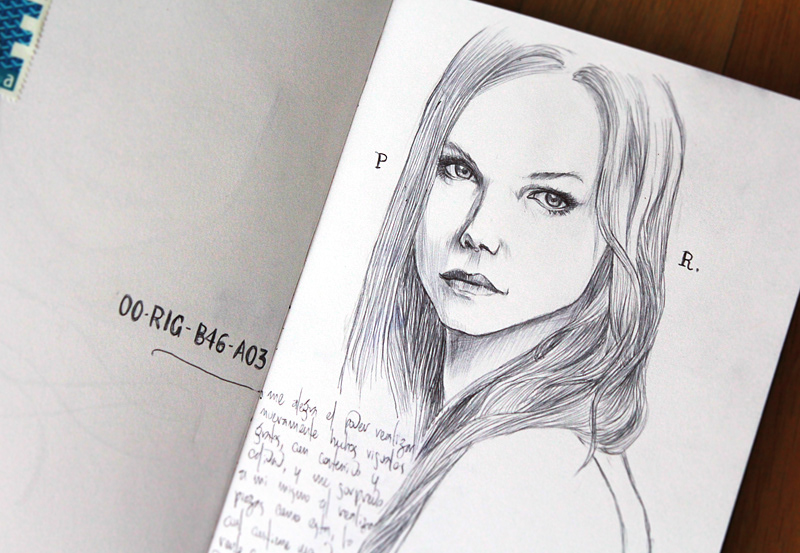 a
00-RIG-B46-A03
P
R.
me alegra el poder realizar
nuevamente hojas visuales
gratas, con contenido y
y me sorprendo
a mi mismo el realizar
piezas como esta, lo